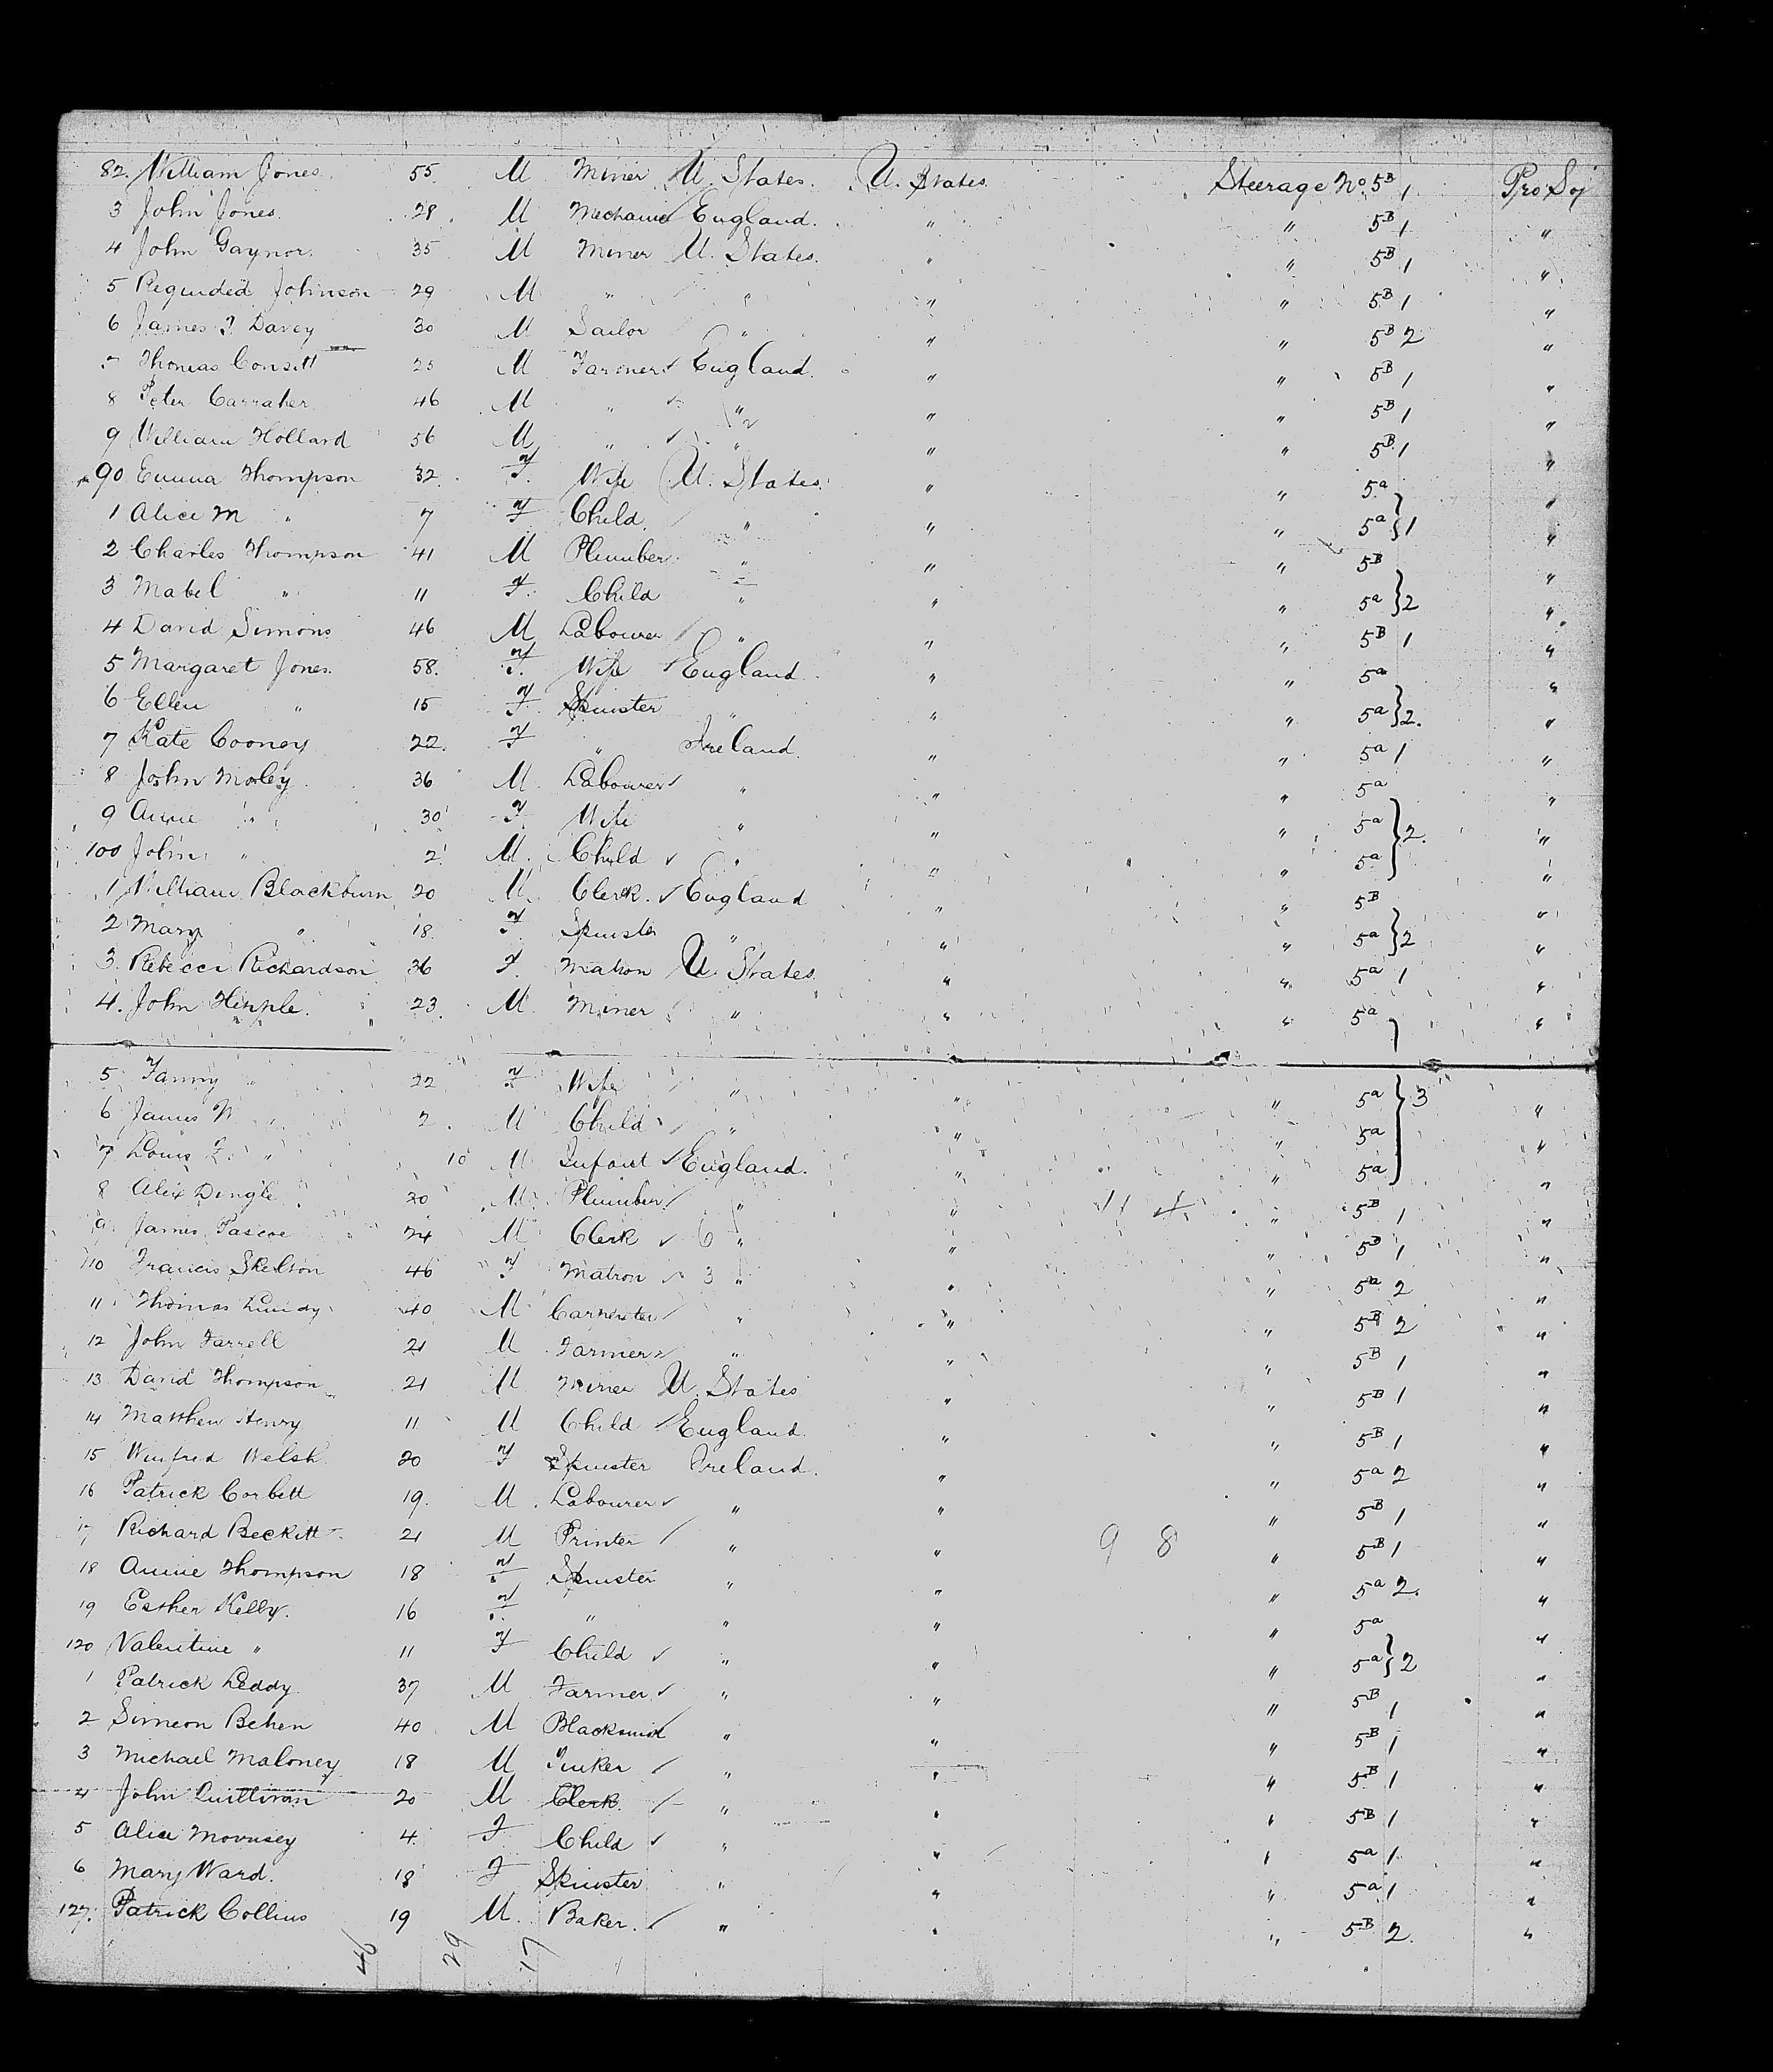 82. William Jones. 55. M Miner U. States. U. States. Steerage No. 5B 1 Pro So
3 John Jones. 28. M Mechanic England. " " 5B 1 "
4 John Gaynor. 35 M Miner U. States. " " 5B 1 "
5 Johnson 29 M " " " " 5B 1 "
6 James T Davey 30 M Sailor " " " 5B 2 "
7 Thomas Consitt 25 M Farmer England. " " 5B 1 "
8 Peter Carraher 46 M " " 2 " " 5B 1 "
9 William Hollard 56 M " " " " 5B 1 "
90 Emma Thompson 32. F. Wife U. States. " " 5a "
1 Alice M " 7 F Child " " " 5a } 1 "
2 Charles Thompson 41 M Plumber " " " 5B "
3 Mabel " 11 F. Child " " " 5a } 2 "
4 David Simons 46 M Labourer " " " 5B 1 "
5 Margaret Jones. 58. F. Wife England " " 5a "
6 Ellen " 15 F Spinster " " " 5a } 2. "
7 Kate Cooney 22. F " Ireland. " " 5a 1 "
8 John Moley 36 M Labourer " " " 5a "
9 Annie " 30 F. Wife " " " 5a } 2. "
100 John " 2 M. Child " " " 5a "
1 William Blackburn 20 M Clerk. England " " 5B "
2 Mary " 18. F. Spinster " " " 5a } 2 "
3. Rebecca Richardson 36 F. Matron U. States. " " 5a 1 "
4. John Hipple. 23. M Miner " " " 5a "
5 Fanny " 22 F Wife " " " 5a } 3 "
6 James W " 2 M Child " " " 5a "
7 Louis F. " 10 M Infant England. " " 5a "
8 Alex Dingle 20 M Plumber " " 11 4 " 5B 1 "
9 James Pascoe 24 M Clerk 6 " " " 5B 1 "
110 Francis Skelton 46 F Matron 3 " " " 5a 2 "
11 Thomas Lundy 40 M Carpenter " " " 5B 2 "
12 John Farrell 21 M Farmer " " " 5B 1 "
13 David Thompson 21 M Miner U. States " " 5B 1 "
14 Matthew Henry 11 M Child England. " " 5B 1 "
15 Winfred Welsh 20 F Spinster Ireland. " " 5a 2 "
16 Patrick Corbett 19. M. Labourer " " " 5B 1 "
17 Richard Beckitt 21 M Printer " " 9 8 " 5B 1 "
18 Annie Thompson 18 F Spinster " " " 5a 2. "
19 Esther Kelly. 16 F " " " " 5a "
120 Valentine " 11 F Child " " " 5a } 2 "
1 Patrick Leddy 37 M Farmer " " " 5B 1 "
2 Simeon Behen 40 M Blacksmith " " " 5B 1 "
3 Michael Maloney 18 M Tinker " " " 5B 1 "
4 John Quillivan 20 M Clerk " " " 5B 1 "
5 Alice 4 F Child " " " 5a 1 "
6 Mary Ward. 18 F Spinster " " " 5a 1 "
127. Patrick Collins 19 M. Baker. " " " 5B 2. "
46 29 17